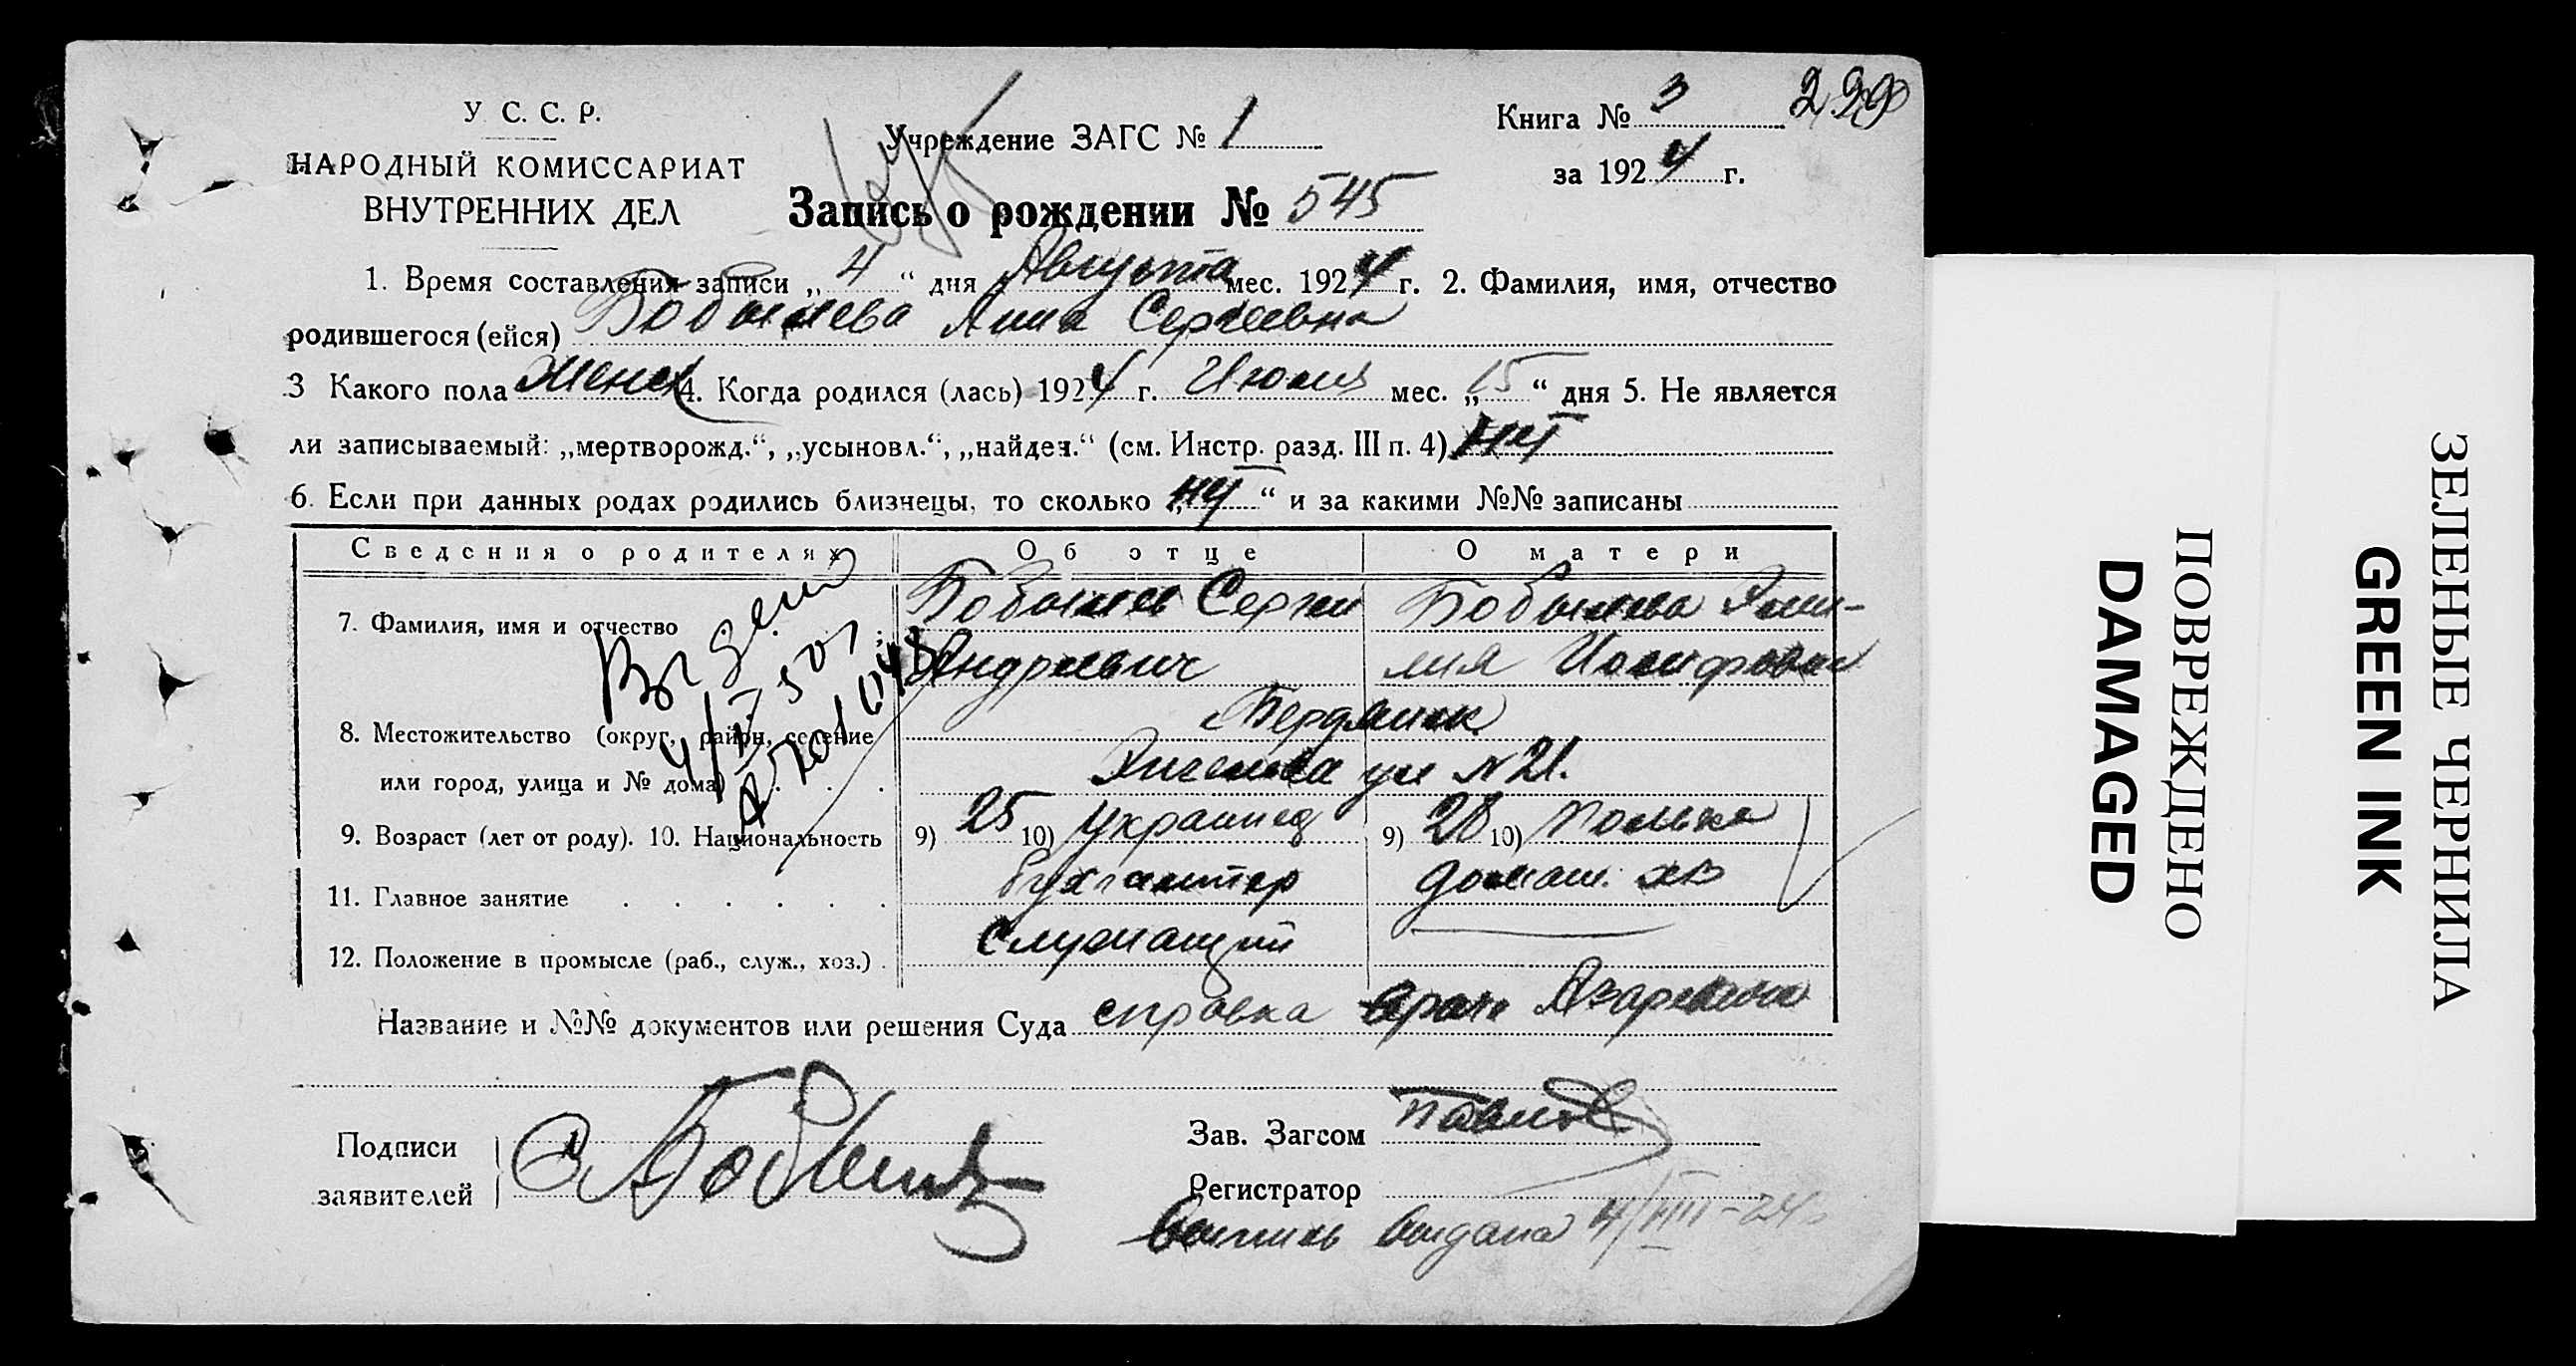 У. С. С. Р.
НАРОДНЫЙ КОМИССАРИАТ
ВНУТРЕННИХ ДЕЛ
Учреждение ЗАГС № 1
Книга № 3
за 1924 г.
Запись о рождении № 545
1. Время составления записи „4“ дня Августа мес. 1924 г. 2. Фамилия, имя, отчество
родившегося (ейся) Бобылева Анна Сергеевна
3 Какого пола женск 4. Когда родился (лась) 1924 г. Июля мес. „15“ дня 5. Не является
ли записываемый: „мертворожд.“, „усыновл.“, „найден.“ (см. Инстр. разд. III п. 4) нет
6. Если при данных родах родились близнецы, то сколько „нет“ и за какими №№ записаны
Сведения о родителях Об отце О матери
7. Фамилия, имя и отчество Бобылев Сергей Бобылева Эми-
Андреевич лия Иосифовна
8. Местожительство (округ, район, селение Бердянск
или город, улица и № дома) ул N 21.
9. Возраст (лет от роду). 10. Национальность 9) 25 10) Украинец 9) 28 10) Полька
11. Главное занятие бухгалтер домаш. хоз
12. Положение в промысле (раб., служ., хоз.) Служащий
Название и №№ документов или решения Суда справка врача
Подписи
заявителей
Зав. Загсом Павлов
Регистратор
Выпись выдана 4/VIII-24г
Выдано
ЗЕЛЕНЫЕ ЧЕРНИЛА
GREEN INK
ПОВРЕЖДЕНО
DAMAGED